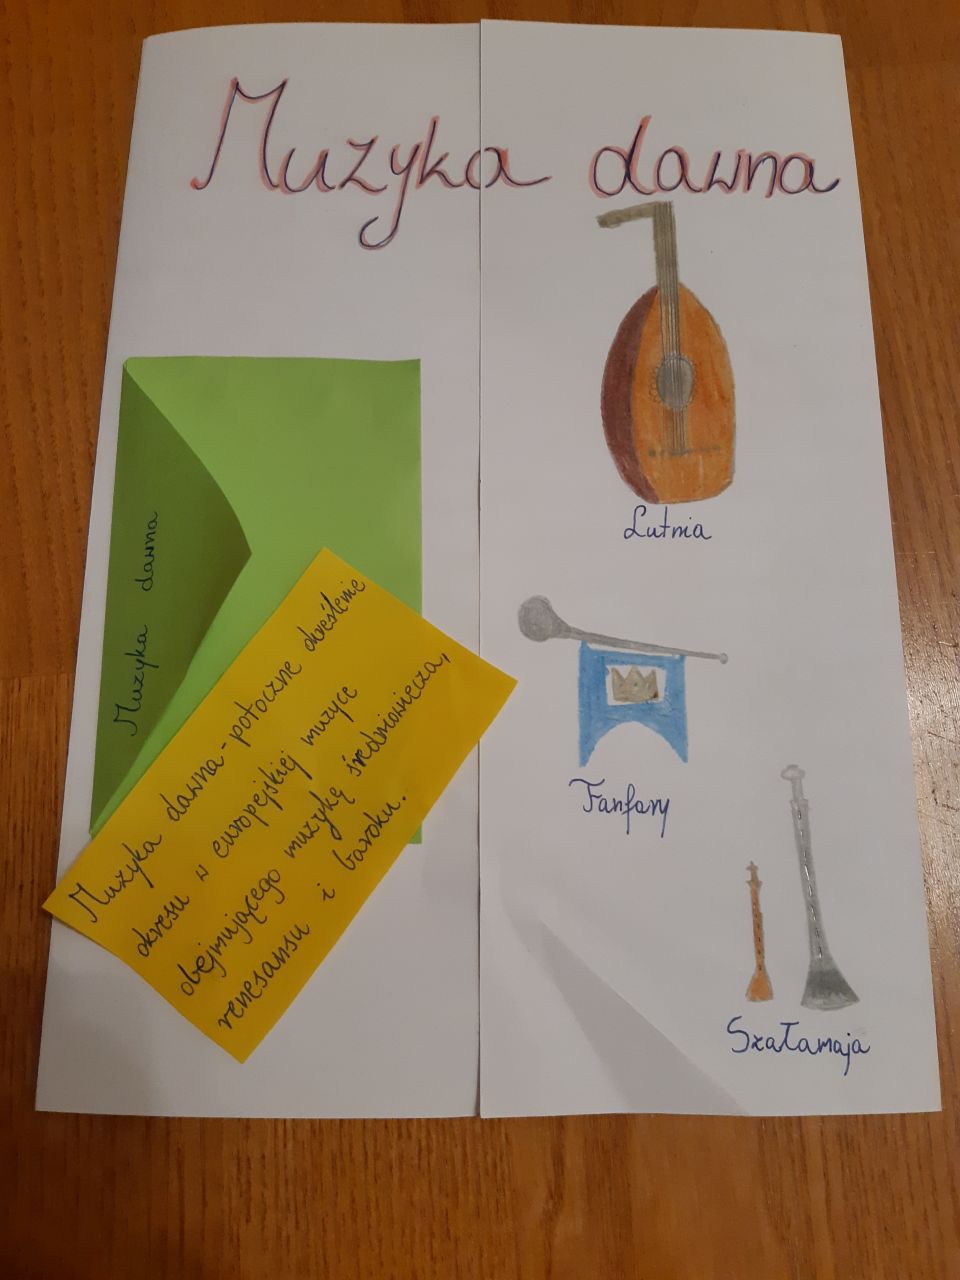 Muzyka dawna
Muzyka dawna
Muzyka dawna - potoczne określenie
okresu w europejskiej muzyce
obejmującego muzykę średniowiecza,
renesansu i baroku.
Lutnia
Fanfary
Szałamaja